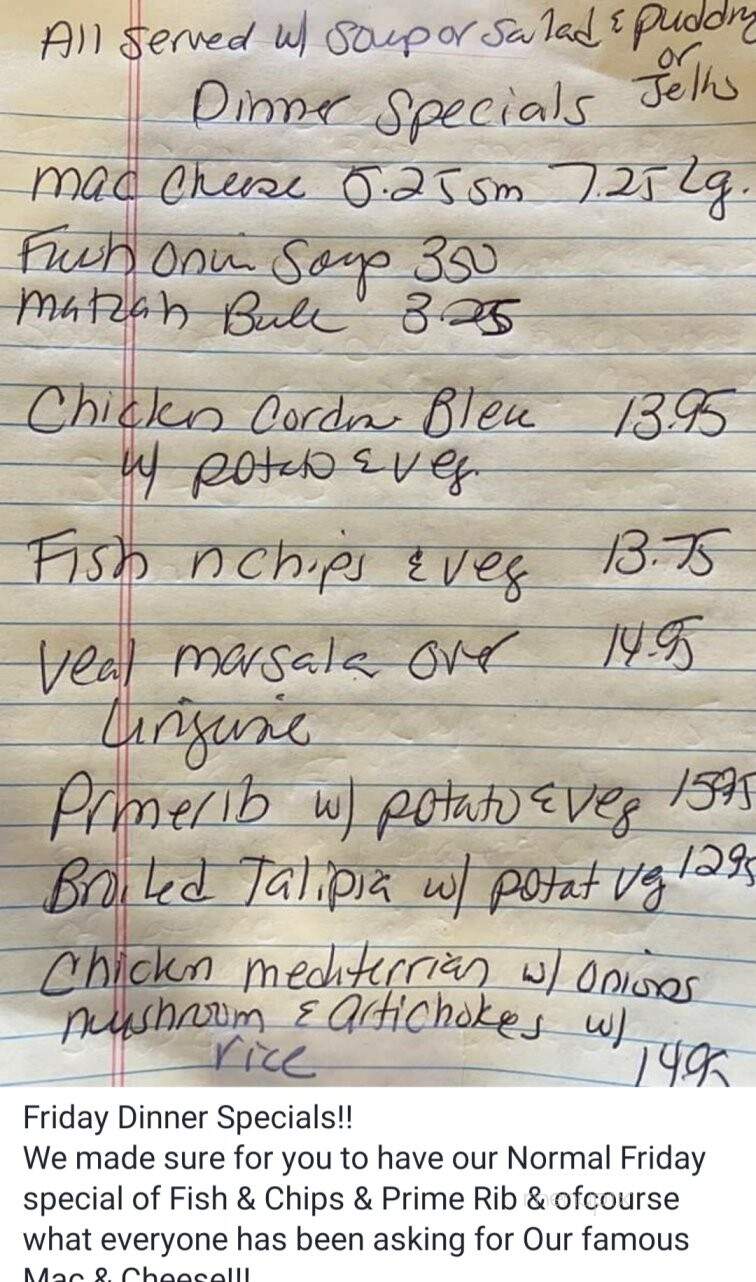 All Served w/ Soup or Salad & pudding
or
Jello
Dinner Specials
mac Cheese 5.25 sm 7.25 Lg.
Soup 350
Matzah Ball 3.25
Chicken Cordn Bleu 13.95
w/ potato & veg.
Fish n chips & veg 13.75
Veal marsala over 14.95
linguine
Prmerib w/ potato & veg 1595
Broiled Talipia w/ potat vg 1295
Chickn mediterrian w/ onions
mushroom & artichokes w/
rice 1495
Friday Dinner Specials!!
We made sure for you to have our Normal Friday
special of Fish & Chips & Prime Rib & ofcourse
what everyone has been asking for Our famous
Mac & Cheese!!!